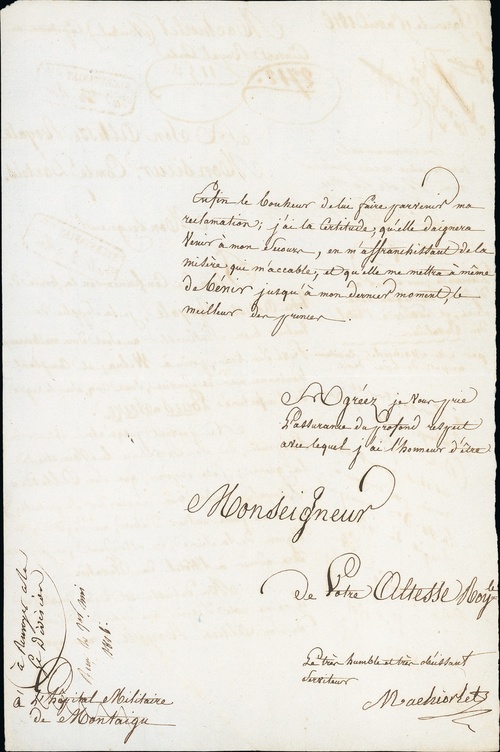 Enfin le bonheur de lui faire parvenir ma
reclamation; j'ai la Certitude, qu'elle daignera
Venir à mon Secours, en m'affranchissant de la
misère qui m'accable, et qu'elle me mettra a même
de benir jusqu'à mon dernier moment, le
meilleur des princes.
Agréez je vous prie
l'assurance du profond respect
avec lequel j'ai l'honneur d'être
Monseigneur
de Votre Altesse Roy.le
Le très humble et très obéissant
Serviteur
à renvoyer à la
Division
1er mai
1818.
à L'hôpital Militaire
de Montaigu